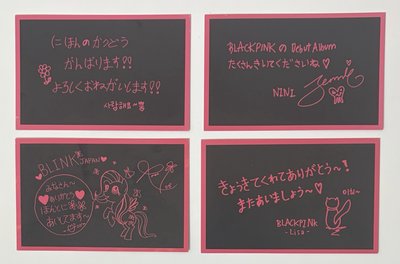 にほんのかつどう
がんばります!!
よろしくおねがいします!!
사랑해요~
BLACKPINKのDebut Album
たくさんきいてくださいね♡
NINI
Jennie
BLINK JAPAN
みなさん~
ありがとう~
ほんとに
あいしてます~
きょうきてくれてありがとう~!
またあいましょう~♡
BLACKPINK
-Lisa-